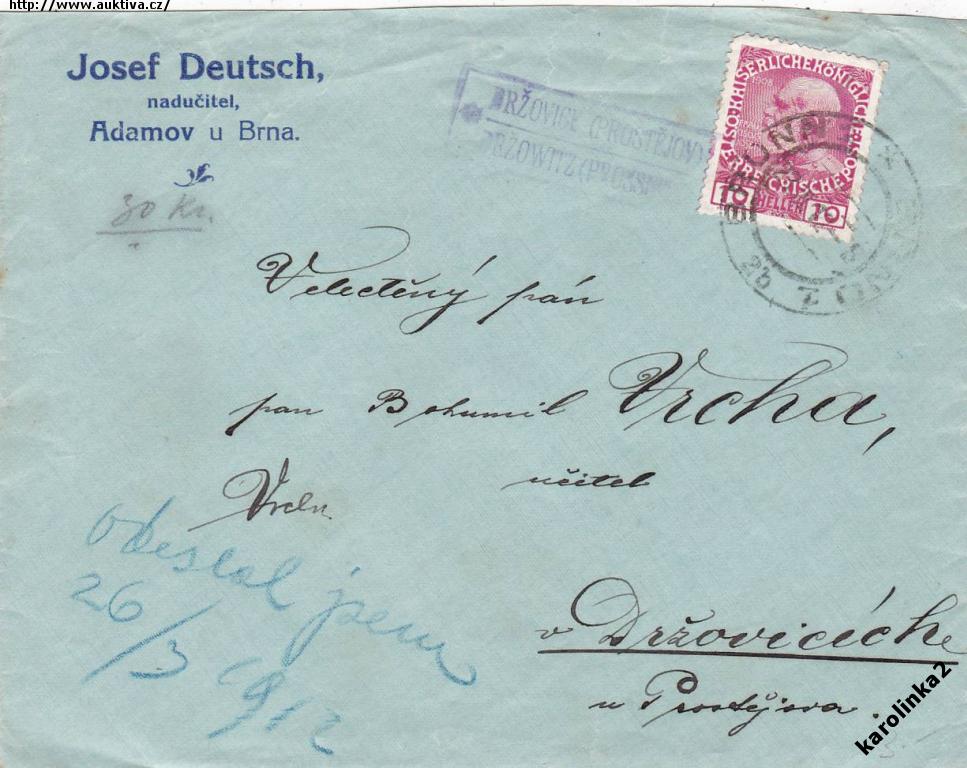 http://www.auktiva.cz/
Josef Deutsch,
nadučitel,
Adamov u Brna.
30 Kr.
DRŽOVICE (PROSTĚJOV)
DRZOWITZ (PROSS
KAISERLICHE KÖNIGLICHE
ÖSTERREICHISCHE POST
1908
10 HELLER 10
BRÜNN
BRNO 2
2b
Velectěný pán
pan Bohumil Vrcha,
učitel
v Držovicích
u Prostějova.
odeslal jsem
26/3 1912
karolinka2